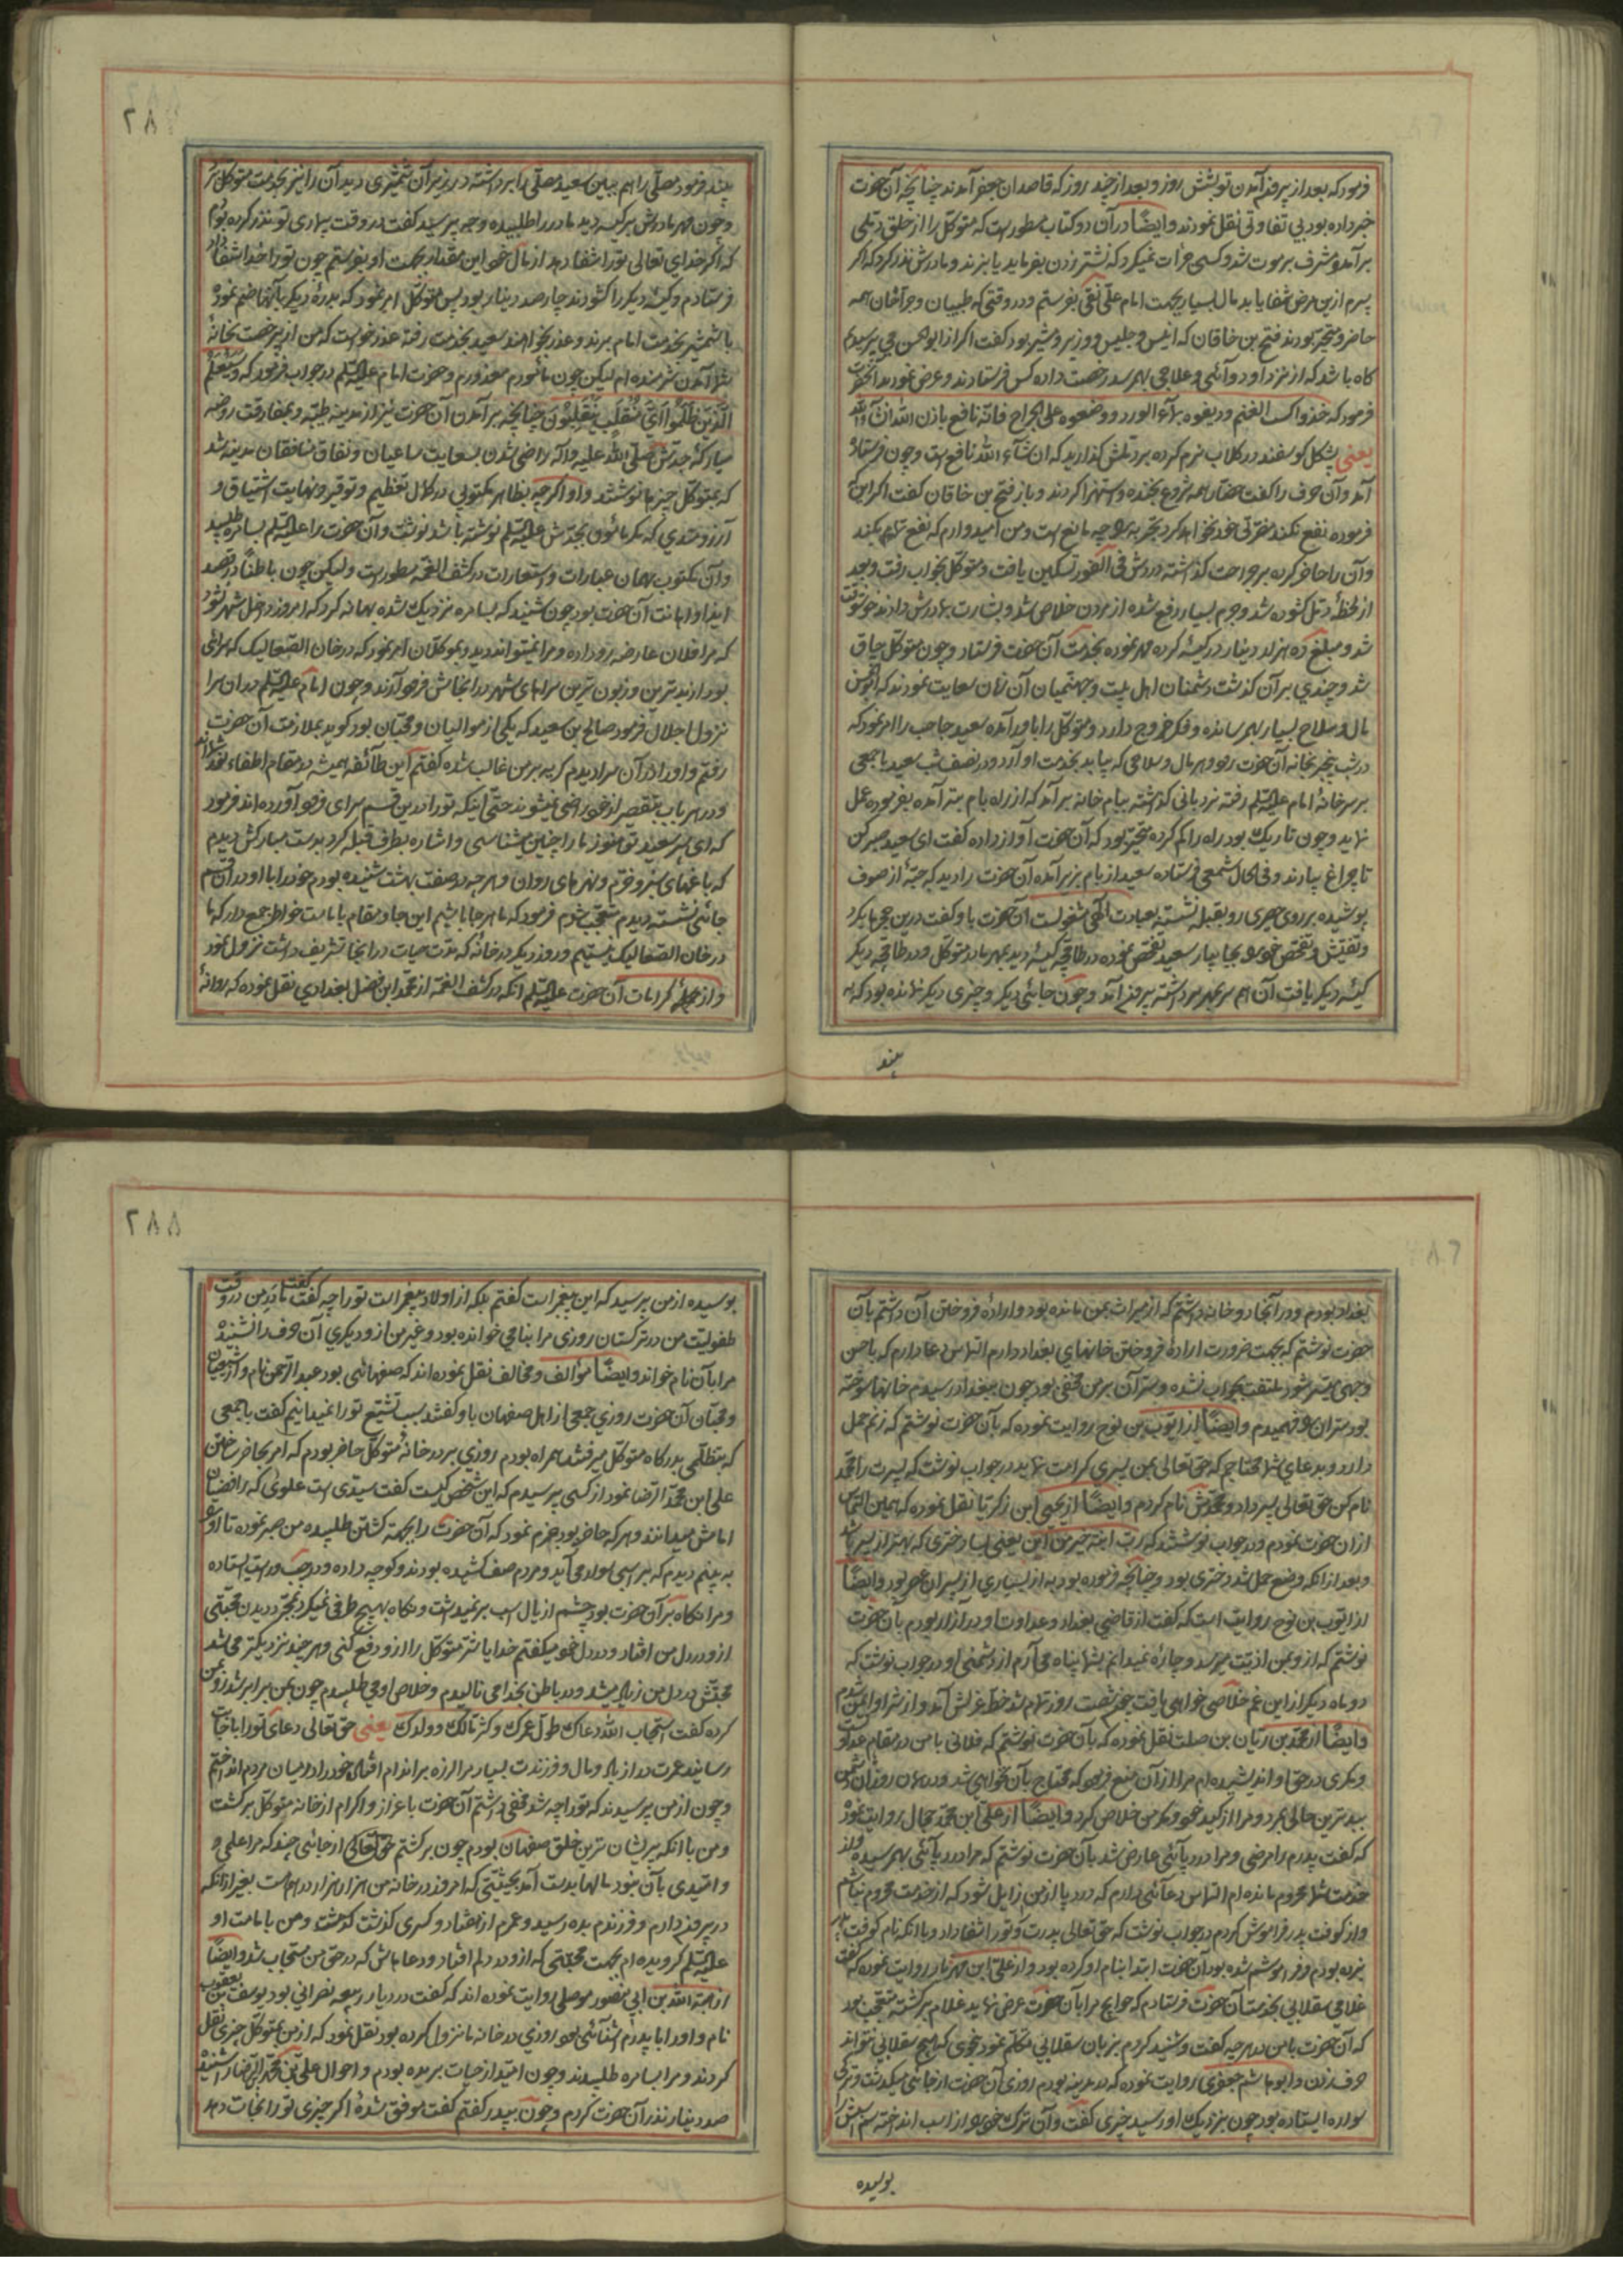 فرمود که بعد از بیرون آمدن تو بشش روز و بعد از چند روز که قاصدان جعفر آمدند چنانچه آن حضرت
خبر داده بود بی تفاوتی نقل نمودند وایضاً در آن دو کتاب مسطور است که متوکل را از حلق دملی
برآمد و مشرف بر موت شد و کسی جرأت نمیکرد که نشتر زدن بفرماید یا بزند و مادرش نذر کرد که اگر
پسرم ازین مرض شفا یابد مال بسیار بجهت امام علی نقی بفرستم و در وقتی که طبیبان و جراحان همه
حاضر و متحیر بودند فتح بن خاقان که انیس و جلیس و وزیر و مشیر بود گفت اگر از ابوالحسن می پرسیدیم
گاه باشد که از نزد او دوائی و علاجی بهم رسد رخصت داده کس فرستادند و عرض نمودند آنحضرت
فرمود که خذوا کسب الغنم و دیفوه بماء الورد و وضعوه علی الجراح فانّه نافع باذن الله انشاء الله
یعنی پشکل گوسفند در گلاب نرم کرده بر دملش گذارید که ان شاء الله نافع است و چون فرستاده
آمد و آن حرف را گفت حضار همه شروع بخنده و استهزا کردند و باز فتح بن خاقان گفت اگر این
فرموده نفع نکند مضرتی خود نخواهد کرد تجربه را چه مانع است و من امیدوارم که نفع تمام بکند
وآن را حاضر کرده بر جراحت گذاشته دردش فی الفور تسکین یافت و متوکل بخواب رفت و بعد
از لحظه دمل گشوده شد و جرم بسیار دفع شده از مردن خلاص شد و بشارت بمادرش دادند خوشوقت
شد و مبلغ ده هزار دینار در کیسه کرده مهر نموده بخدمت آن حضرت فرستاد و چون متوکل چاق
شد و چندی بر آن گذشت دشمنان اهل بیت و جهنمیان آن زمان سعایت نمودند که ابوالحسن
مال و سلاح بسیار بهم رسانده و فکر خروج دارد و متوکل را باور آمده سعید حاجب را امر نمود که
در شب بیخبر بخانه آن حضرت رود و هر مال و سلاحی که بیابد بخدمت او آرد و در نصف شب سعید با جمعی
بر سر خانه امام علیه السلم رفته نردبانی گذاشته ببام خانه برآمد که از راه بام بته آمده بفرموده عمل
نماید و چون تاریک بود راه را گم کرده متحیر بود که آن حضرت آواز داده گفت ای سعید صبر کن
تا چراغ بیارند و فی الحال شمعی فرستاده سعید از بام بزیر آمده آن حضرت را دید که جبهٔ از صوف
پوشیده بر روی حصیری رو بقبله نشسته بعبادت الهی مشغول است آن حضرت باو گفت درین حجرها بگرد
و تفتیش و تفحص خود بجا بیار سعید تفحص نموده در طاقچه کیسه دید بمهر مادر متوکل و در طاقچه دیگر
کیسه دیگر یافت آن هم سر بمهر برداشته بیرون آمد و چون جائی دیگر و چیزی دیگر نمانده بود که به
بیند
۲۸۷
بیند فرمود مصلّی را هم ببین سعید مصلّی را برداشته در زیر آن شمشیری دید آن را نیز بخدمت متوکل برد
و چون مهر مادرش بر کیسه دید مادر را طلبیده وجه پرسید گفت در وقت بیماری تو نذر کرده بودم
که اگر خدای تعالی تو را شفا دهد از مال خود این مقدار بجهت او بفرستم چون تو را خدا شفا داد
فرستادم و کیسه دیگر را گشودند چهار صد دینار بود پس متوکل امر نمود که بدرهٔ دیگر بآنها ضم نموده
با شمشیر بخدمت امام برند و عذر بخواهند سعید بخدمت رفته عذر خواست که من از بیرخصت بخانهٔ
شما آمدن شرمنده ام لیکن چون مأمورم معذورم و حضرت امام علیه السلم در جواب فرمود که وَسَیَعْلَمُ
الَّذِینَ ظَلَمُوا أَیَّ مُنقَلَبٍ یَنقَلِبُونَ چنانچه برآمدن آن حضرت نیز از مدینه طیبه و بمفارقت روضه
مبارکهٔ جدّش صلّی الله علیه وآله راضی شدن بسعایت ساعیان و نفاق منافقان مدینه شد
که بمتوکل چیزها نوشتند و او اگرچه بظاهر مکتوبی در کمال تعظیم و توقیر و نهایت اشتیاق و
آرزومندی که مگر مأمون بجدش علیه السلم نوشته باشد نوشت و آن حضرت را علیه السلم بسامره طلبید
و آن مکتوب بهمان عبارات و استعارات در کشف الغمه مسطور است ولیکن چون باطناً در صدد
ایذا و اهانت آن حضرت بود چون شنید که بسامره نزدیک شده بهانه کرد که امروز داخل شهر نشود
که مرا فلان عارضه رو داده و مرا نمیتواند دید و بموکلان امر نمود که در خان الصعالیک که سرائی
بود از بدترین و زبون ترین سراهای شهر در انجاش فرود آورند و چون امام علیه السلم در ان سرا
نزول اجلال فرمود صالح بن سعید که یکی از موالیان و محبّان بود گوید بملازمت آن حضرت
رفتم و او را در آن سرا دیدم گریه بر من غالب شده گفتم این طائفه همیشه در مقام اطفاء نور شمااند
و در هر باب بتقصیر از خود راضی نمیشوند حتّی اینکه تو را در این قسم سرای فرود آورده اند فرمود
که ای پسر سعید تو هنوز ما را چنین میشناسی و اشاره بطرف قبله کرد بدست مبارکش دیدم
که باغهای سبز و خرم و نهرهای روان و هرچه در صفت بهشت شنیده بودم خود را با او در آن قسم
جائی نشسته دیدم متعجب شدم فرمود که ما هر جا باشیم این جا و مقام با ماست خواطر جمع دار که ما
در خان الصعالیک نیستیم و روز دیگر در خانهٔ که مدت حیات در انجا تشریف داشت نزول نمود
و از جمله کرامات آن حضرت علیه السلم آنکه در کشف الغمه از محمد ابن فضل بغدادی نقل نموده که روانهٔ
بغداد بودم و در آنجا دو خانه داشتم که از میراث بمن مانده بود و ارادهٔ فروختن آن داشتم بآن
حضرت نوشتم که بجهت ضرورت ارادهٔ فروختن خانهای بغداد دارم التماس دعا دارم که باحسن
وجهی میسر شود ملتفت بجواب نشده و سر آن بر من مخفی بود چون ببغداد رسیدم خانها سوخته
بود سر آن را فهمیدم وایضاً از ایوب بن نوح روایت نموده که بآن حضرت نوشتم که زنم حمل
دارد و بدعای شما محتاجم که حق تعالی بمن پسری کرامت نماید در جواب نوشت که پسرت را محمد
نام کن حق تعالی پسر داد و محمدش نام کردم وایضاً از یحیی ابن زکریا نقل نموده که همین التماس
از ان حضرت نمودم و در جواب نوشتند که رب ابنة خیر من ابن یعنی بسا دختری که بهتر از پسر باشد
و بعد از انکه وضع حمل شد دختری بود و چنانچه فرموده بود به از بسیاری از پسران عصر بود وایضاً
از ایوب بن نوح روایت است که گفت از قاضی بغداد و عداوت او در آزار بودم بان حضرت
نوشتم که از و بمن اذیت میرسد و چاره نمیدانم بشما پناه می آرم از دشمنی او در جواب نوشت که
دو ماه دیگر از این غم خلاصی خواهی یافت چون شصت روز تمام شد خط عزلش آمد و از شر او ایمن شدم
وایضاً از محمد بن ریان بن صلت نقل نموده که بآن حضرت نوشتم که فلانی با من در مقام عداوت است
و مکری در حق او اندیشیده ام مرا از آن منع فرمود که محتاج بآن نخواهی شد و در همان روز آن دشمن
ببدترین حالی بمرد و مرا از کید خود و مکر من خلاص کرد وایضاً از علی ابن محمد جمال روایت نموده
که گفت پدرم را مرضی و مرا درد پائی عارض شد بآن حضرت نوشتم که مرا درد پائی بهم رسیده و از
خدمت شما محروم مانده ام التماس دعائی دارم که درد پا از من زایل شود که از خدمت محروم نباشم
و از کوفت پدر فراموش کردم در جواب نوشت که حق تعالی پدرت و تو را شفا داد و با انکه نام کوفت پدر
نبرده بودم و فراموشم شده بود آن حضرت ابتدا بنام او کرده بود و از علی ابن مهزیار روایت نموده که گفت
غلامی سقلابی بخدمت آن حضرت فرستادم که حوایج مرا بآن حضرت عرض نماید غلام برگشته متعجب بود
که آن حضرت با من هر چه گفت و شنید کردم بزبان سقلابی تکلم نمود بنحوی که هیچ سقلابی نتواند
حرف زدن و ابوهاشم جعفری روایت نموده که در مدینه بودم روزی آن حضرت از جائی میگذشت و ترکی
سواره ایستاده بود چون بنزدیک او رسید چیزی گفت و آن ترک خود را از اسب انداخته سم اسبش را
بوسیده
۲۸۸
بوسیده از من پرسید که این پیغمبر است گفتم بلکه از اولاد پیغمبر است تو را چه گفت گفت مادر من در وقت
طفولیت من در ترکستان روزی مرا بنامی خوانده بود و غیر من از و دیگری آن حرف را نشنیده
مرا بآن نام خواند وایضاً مؤالف و مخالف نقل نموده اند که صفهانی بود عبد الرحمن نام و از شیعیان
و محبّان آن حضرت روزی جمعی از اهل صفهان باو گفتند سبب تشیّع تو را نمیدانیم گفت با جمعی
که بتظلّمی بدرگاه متوکل میرفتند همراه بودم روزی بر در خانهٔ متوکل حاضر بودم که امر بحاضر ساختن
علی ابن محمد الرضا نمود از کسی پرسیدم که این شخص کیست گفت سیّدی است علوی که رافضیان
امامش میدانند و هر که حاضر بود جزم نمود که آن حضرت را بجهة کشتن طلبیده من صبر نموده تا او را
به بینم دیدم که بر اسبی سوار می آید و مردم صف کشیده بودند و کوچه داده و در چپ و راست ایستاده
و مرا نگاه بر آن حضرت بود چشم از یال اسب بر نمیداشت و نگاه بهیچ طرفی نمیکرد بمجرد دیدن محبّتی
از و در دل من افتاد و در دل خود میگفتم خدایا شر متوکل را از و دفع کنی و هر چند نزدیکتر می شد
محبّتش در دل من زیاد میشد و در باطن بخدا می نالیدم و خلاصی او می طلبیدم چون بمن برابر شد رو بمن
کرده گفت استجاب الله دعاک طوّل عمرک و کثّر مالک و ولدک یعنی حق تعالی دعای تو را باجابت
رساند عمرت دراز باد و مال و فرزندت بسیار مرا لرزه بر اندام افتاد خود را در میان مردم انداختم
و چون از من پرسیدند که تو را چه شد مخفی داشتم آن حضرت با عزاز و اکرام از خانهٔ متوکل برگشت
و من با انکه پریشان ترین خلق صفهان بودم چون برگشتم حق تعالی از جائی چند که مرا علمی و
و امیدی بآن نبود مالها بدست آمد بحیثیتی که امروز در خانه من هزار هزار درهم است بغیر از انکه
در بیرون دارم و فرزندم بده رسید و عمرم از هفتاد و کسری گذشت گذشت و من بامامت او
علیه السلم گرویده ام بجهت محبّتی که از و در دلم افتاد و دعاهاش که در حق من مستجاب شد وایضاً
از هبة الله بن ابی منصور موصلی روایت نموده اند که گفت در دیار ربیعه نصرانی بود یوسف بن یعقوب
نام و او را با پدرم اشنائی بود روزی در خانه ما نزول کرده بود نقل نمود که از من بمتوکل چیزی نقل
کردند و مرا بسامره طلبیدند و چون امید از حیات بریده بودم و احوال علی بن محمد الرضا را شنیده
صد دینار نذر آن حضرت کردم و چون بپدر گفتم گفت موفق شدهٔ اگر چیزی تو را نجات دهد